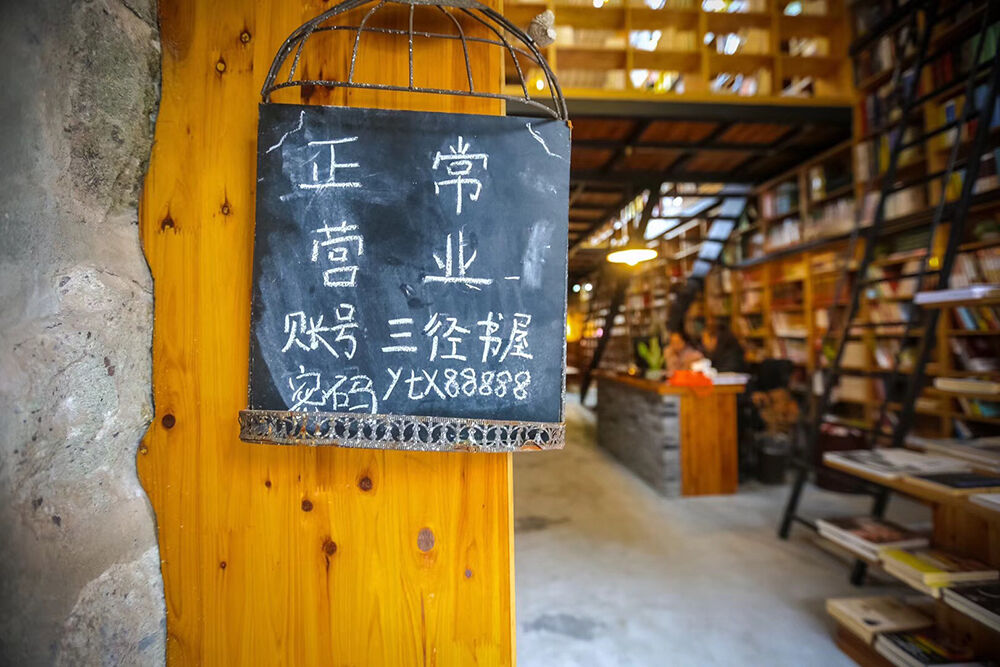 正常
营业
账号 三径书屋
密码 ytx88888